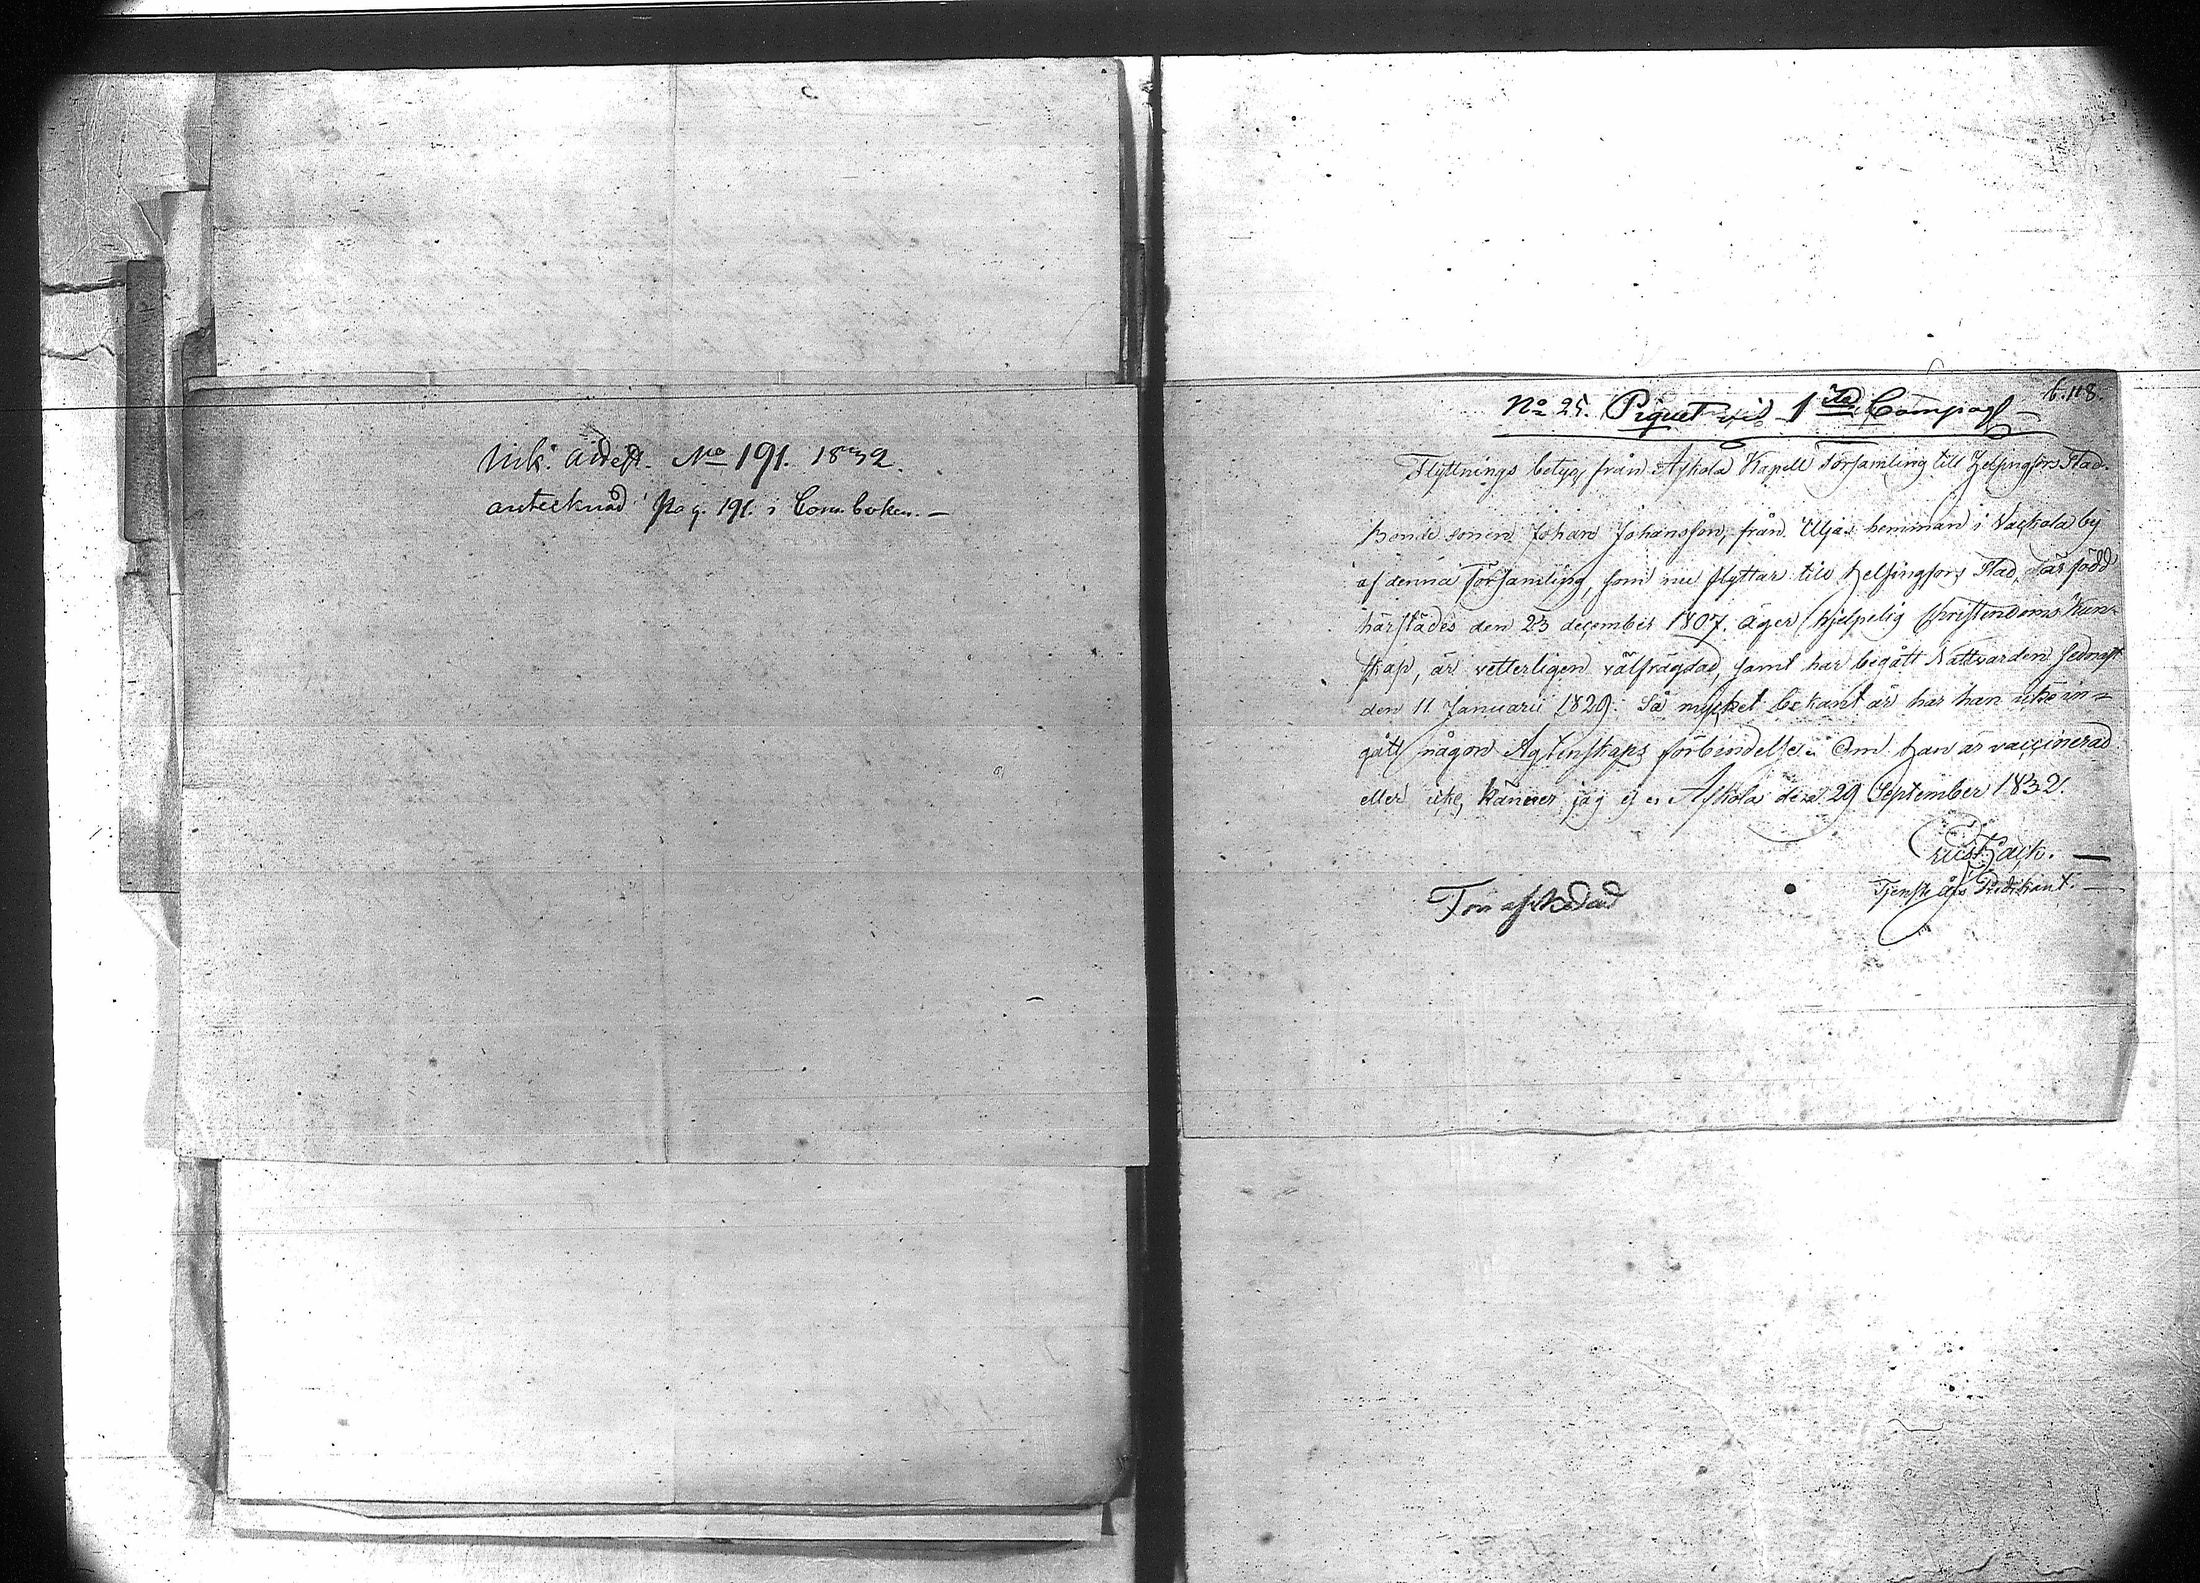 Ink. attest. No 191. 1832.
antecknad Pag. 191. i Com. boken. —
6. 118.
No 25. Piquet vid 1sta Compag —
Flyttnings betyg från Askola Kapell Församling till Helsingfors Stad.
Bonde sonen Johan Johansson, från Uljas hemman i Vackola by
af denna Församling, som nu flyttar till Helsingfors Stad, är född
härstädes den 23 december 1807. äger hjelpelig Christendoms kun-
skap, är vetterligen välfrägdad, samt har begått Nattvarden sednast
den 11 Januarii 1829. Så mycket bekant är har han icke in=
gått någon Agtenskaps förbindelse. Om han är vaccinerad
eller icke, känner jag ej. Askola den 29 September 1832.
Hack. —
Tjenst. Predikant. —